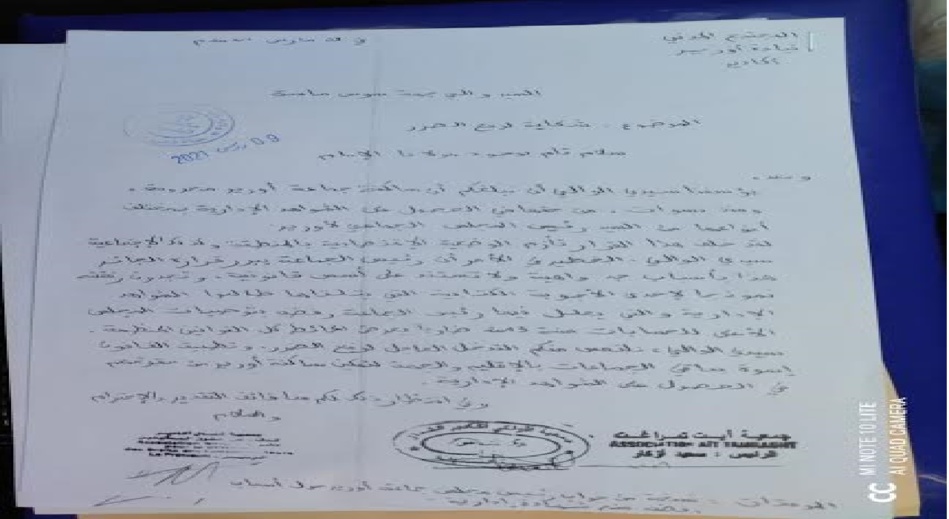 المجتمع المدني
قيادة أورير
أكادير
في 09 مارس
السيد والي جهة سوس ماسة
الموضوع: شكاية لرفع الضرر
09 مارس 2021
سلام تام بوجود مولانا الإمام
وبعد،
يؤسفنا سيدي الوالي أن نبلغكم أن ساكنة جماعة أورير محرومة،
ومنذ سنوات، من حقها في الحصول على الشواهد الإدارية بمختلف
أنواعها من السيد رئيس المجلس الجماعي لأورير.
لقد خلف هذا القرار تأزم الوضعية الاقتصادية والاجتماعية بالمنطقة
سيدي الوالي، الخطير في الأمر أن رئيس الجماعة يبرر قراره الجائر
هذا بأسباب جد واهية ولا تستند على أسس قانونية، وتجدون رفقته
نموذجا لإحدى الأجوبة الكتابية التي يتلقاها طالبوا الشواهد
الإدارية والتي يعلل فيها رئيس الجماعة رفضه بتوصيات المجلس
الأعلى للحسابات ضاربا بعرض الحائط كل القوانين المنظمة.
سيدي الوالي، نلتمس منكم التدخل العاجل لرفع الضرر وتطبيق القانون
أسوة بباقي الجماعات بالإقليم والجهة لتمكين ساكنة أورير من حقوقهم
في الحصول على الشواهد الإدارية.
وفي انتظار ذلك لكم منا فائق التقدير والاحترام
والسلام
جمعية أيت تمراغت
ASSOCIATION AIT TAMRAGHT
الرئيس: سعيد
المرفقات: نسخة من جواب رئيس مجلس جماعة أورير حول أسباب
رفضه منح شهادة إدارية.
MI NOTE 10 LITE
AI QUAD CAMERA